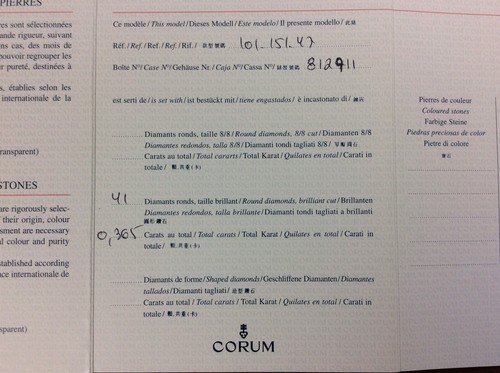 PIERRES
es sont sélectionnées
ande rigueur, suivant
ns cas, des mois de
pouvoir regrouper les
r pureté, destinées à
s, établies selon les
internationale de la
ransparent)
STONES
are rigorously selec-
their origin, colour
sment are necessary
al colour and purity
stablished according
ace internationale de
sparent)
Ce modèle / This model / Dieses Modell / Este modelo / Il presente modello / 此錶
Réf. / Ref. / Ref. / Ref. / Rif. / 101.151.47
Boîte Nº / Case Nº / Gehäuse Nr. / Caja Nº / Cassa Nº / 812911
est serti de / is set with / ist bestückt mit / tiene engastados / è incastonato di /
Diamants ronds, taille 8/8 / Round diamonds, 8/8 cut / Diamanten 8/8
Diamantes redondos, talla 8/8 / Diamanti tondi tagliati 8/8 /
Carats au total / Total cararts / Total Karat / Quilates en total / Carati in
totale /
41 Diamants ronds, taille brillant / Round diamonds, brilliant cut / Brillanten
Diamantes redondos, talla brillante / Diamanti tondi tagliati a brillanti
0,365 Carats au total / Total carats / Total Karat / Quilates en total / Carati in
totale /
Diamants de forme / Shaped diamonds / Geschliffene Diamanten / Diamantes
tallados / Diamanti tagliati /
Carats au total / Total carats / Total Karat / Quilates en total / Carati in
totale /
CORUM
Pierres de couleur
Coloured stones
Farbige Steine
Piedras preciosas de color
Pietre di colore